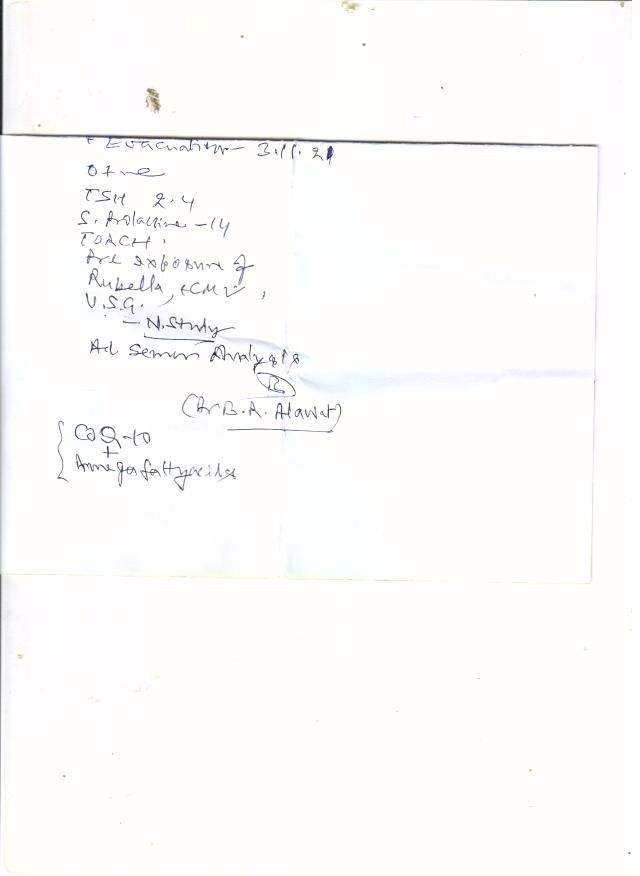 + Evacuation - 3.11.21
O +ve
TSH 2.4
S. Prolactine - 14
TORCH.
Are exposure of
Rubella, +CMV,
U.S.G.
- N. Study
Ad Semen Analysis
(Dr B.R. Atawat)
{ CoQ-10
+
Amegafattyacids